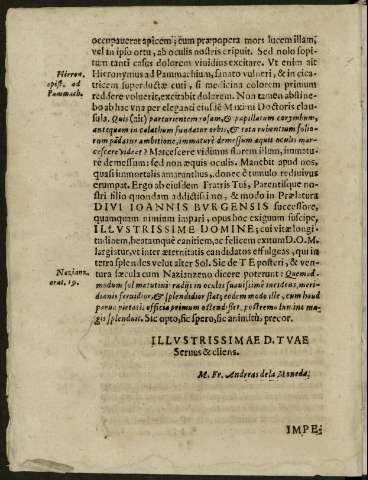 occupaverat apicem; cum præpopera mors lucem illam,
vel in ipso ortu, ab oculis nostris eripuit. Sed nolo sopi-
tum tanti casus dolorem viuidius excitare. Vt enim ait
Hieron. epist. ad Pammach.
Hieronymus ad Pammachium, sanato vulneri, & in cica-
tricem superductæ cuti, si medicina colorem primum
reddere voluerit, excitabit dolorem. Non tamen abstine-
bo ab hac vna per eleganti eiusdē Maximi Doctoris clau-
sula. Quis (ait) parturientem rosam, & papillatum corymbum,
antequam in calathum fundatur orbis, & tota rubentium folio-
rum pādatur ambitione, immaturè demessum æquis oculis mar-
cescere videat? Marcescere vidimus florem illum, immatu-
rè demessum: sed non æquis oculis. Manebit apud nos,
quasi immortalis amaranthus, donec è tumulo rediuiuus
erumpat. Ergo ab eiusdem Fratris Tui, Parentisque no-
stri filio quondam addictissimo, & modo in Prælatura
DIVI IOANNIS BVRGENSIS successore,
quamquam nimium impari, opus hoc exiguum suscipe,
ILLVSTRISSIME DOMINE; cui vitæ longi-
tudinem, beatamquè canitiem, ac felicem exitum D.O.M.
largistur, vt inter æternitatis candidatos effulgeas, qui in
terra splendes velut alter Sol. Sic de TE posteri, & ven-
tura sæcula cum Nazianzeno dicere poterunt: Quemad-
Nazianz. orat. 19.
modum sol matutinis radijs in oculos suauissimè incidens, meri-
dianis feruidior, & splendidior fiat; eodem modo ille, cum haud
paruæ pietatis officia primum ostendisset, postremo lumine ma-
gis splenduit. Sic opto, sic spero, sic animitùs precor.
ILLVSTRISSIMAE D. TVAE
Seruus & cliens.
M. Fr. Anderas de la Moneda.
IMPE-